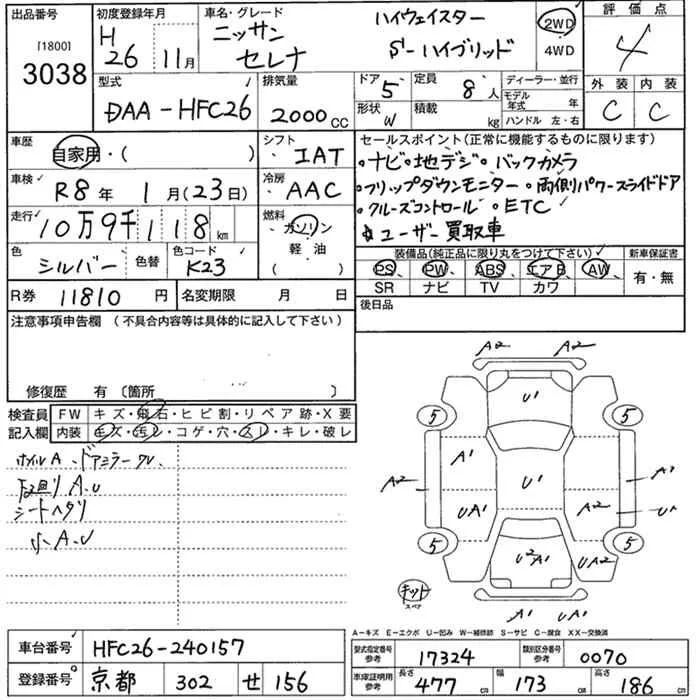 出品番号 初度登録年月 車名・グレード 評価点
[1800] 3038
H 26 11月
ニッサン セレナ
ハイウェイスター
S-ハイブリッド
2WD 4WD
4
型式 DAA-HFC26
排気量 2000CC
ドア 5 定員 8人
形状 W 積載 kg
ディーラー・並行
モデル年式 年
ハンドル 左・右
外装 内装
C C
車歴 自家用・( )
シフト IAT
車検 R8年 1月(23日)
冷房 AAC
走行 10万9千118km
燃料 ガソリン
軽油
( )
色 シルバー 色替 色コード K23
R券 11810円 名変期限 月 日
セールスポイント(正常に機能するものに限ります)
・ナビ・地デジ・バックカメラ
・フリップダウンモニター・両側パワースライドドア
・クルーズコントロール・ETC
ユーザー買取車
装備品(純正品に限り丸をつけて下さい) 新車保証書
PS PW ABS エアB AW 有・無
SR ナビ TV カワ
後日品
注意事項申告欄(不具合内容等は具体的に記入して下さい)
修復歴 有(箇所 )
検査員 FW キズ・飛石・ヒビ割・リペア跡・X要
記入欄 内装 キズ・汚レ・コゲ・穴・スレ・キレ・破レ
ホイルA、ドアミラー
下回り A.U
シートヘタリ
A.U
A2 A2
U1
5 5
A1
A2 U1 A2
UA1 A2 UA
5 5
U2A1 UA2
キット
スペア
A1 UA1
A-キズ E-エクボ U-凹み W-補修跡 S-サビ C-腐食 XX-交換済
車台番号 HFC26-240157
登録番号 京都 302 せ 156
型式指定番号 参考 17324 類別区分番号 参考 0070
車庫証明用 参考 長さ 477cm 幅 173cm 高さ 186cm